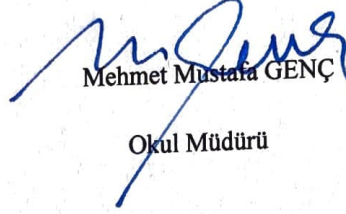 Mehmet Mustafa GENÇ
Okul Müdürü